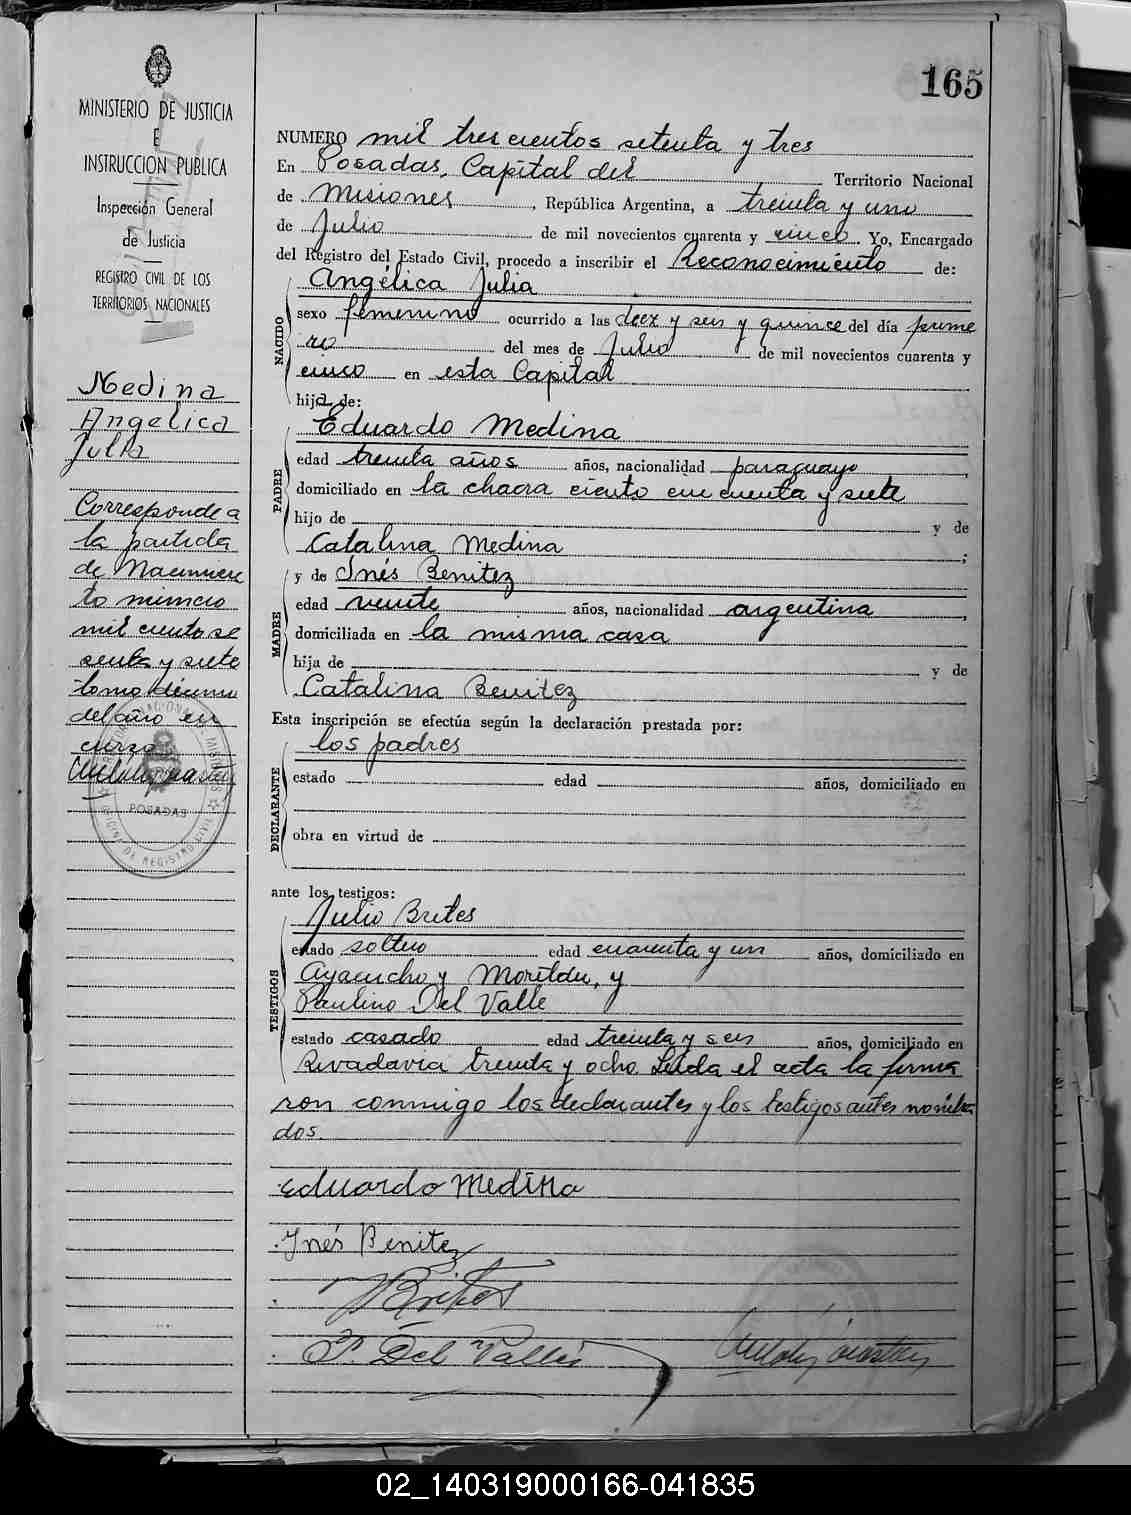 165
MINISTERIO DE JUSTICIA
E
INSTRUCCION PUBLICA
Inspección General
de Justicia
REGISTRO CIVIL DE LOS
TERRITORIOS NACIONALES
Medina
Angélica
Julia
Corresponde a
la partida
de Nacimien
to número
mil ciento se
senta y siete
tomo décimo
del año en
curso
POSADAS
NUMERO mil trescientos setenta y tres
En Posadas, Capital del Territorio Nacional
de Misiones, República Argentina, a treinta y uno
de Julio de mil novecientos cuarenta y cinco Yo, Encargado
del Registro del Estado Civil, procedo a inscribir el Reconocimiento de:
NACIDO
Angélica Julia
sexo femenino ocurrido a las diez y seis y quince del día prime
ro del mes de Julio de mil novecientos cuarenta y
cinco en esta Capital
hija de:
PADRE
Eduardo Medina
edad treinta años años, nacionalidad paraguayo,
domiciliado en la chacra ciento cincuenta y siete
hijo de y de
Catalina Medina;
MADRE
y de Inés Benitez
edad veinte años, nacionalidad argentina,
domiciliada en la misma casa
hija de y de
Catalina Benitez
Esta inscripción se efectúa según la declaración prestada por:
DECLARANTE
los padres
estado edad años, domiciliado en
obra en virtud de
ante los testigos:
TESTIGOS
Julio Brites
estado soltero edad cuarenta y un años, domiciliado en
Ayacucho y , y
Paulino Del Valle
estado casado edad treinta y seis años, domiciliado en
Rivadavia treinta y ocho. Leida el acta la firma
ron conmigo los declarantes y los testigos antes nombra
dos.
Eduardo Medina
Inés Benitez
JBrites
P. Del Valle
02_140319000166-041835